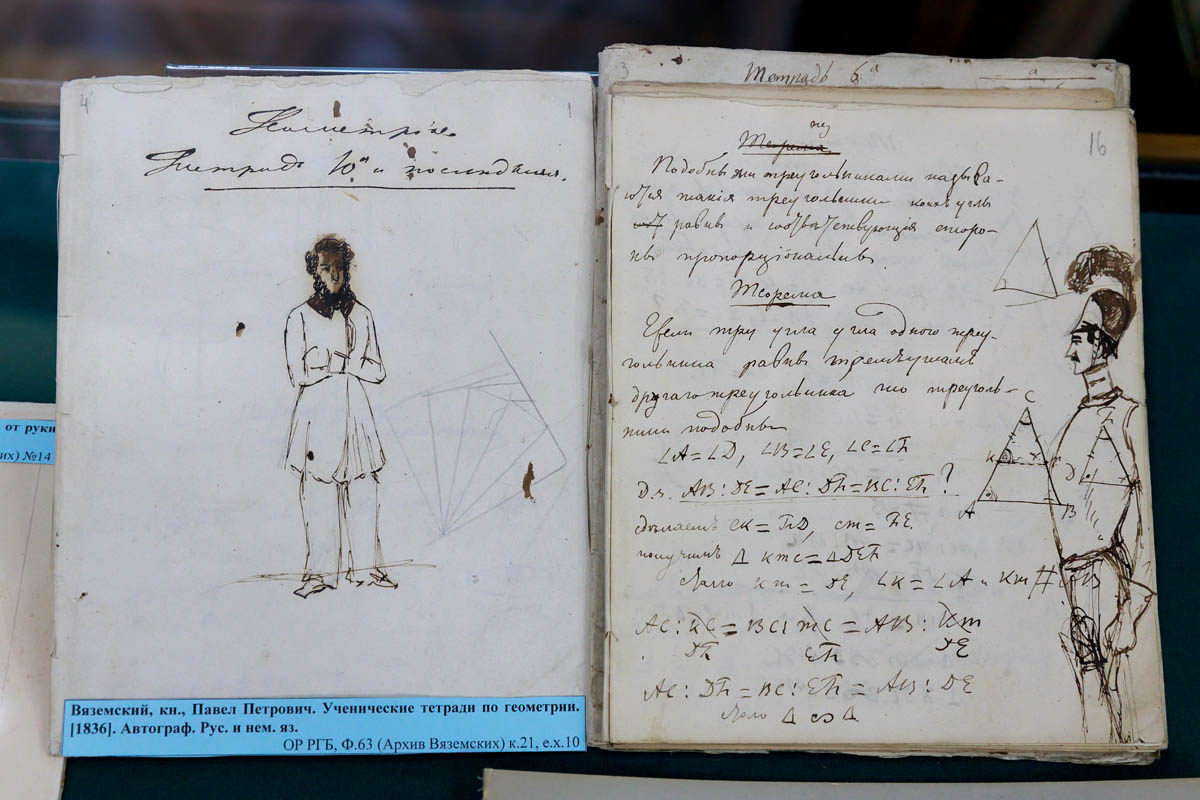 4
1
Геометрія.
Тетрадь 10я и последняя.
от руки
их) №14
Вяземский, кн., Павел Петрович. Ученические тетради по геометрии.
[1836]. Автограф. Рус. и нем. яз.
ОР РГБ, Ф.63 (Архив Вяземских) к.21, е.х.10
3
Тетрадь 6я
16
Теорема
Подобными треугольниками называ-
ются такія треугольники коихъ углы
равны и соотвѣтствующія сторо-
ны пропорціональны.
Теорема
Если три угла угла одного треу-
гольника равны тремъ угламъ
другаго треугольника то треуголь-
ники подобны
∠A=∠D, ∠B=∠E, ∠C=∠F
Дз. AB:DE=AC:DF=BC:EF?
сдѣлаемъ CK=FD, cm=FE.
получимъ Δ KmC=ΔDEF
Km=DE, ∠K=∠A и Km # AB
AC:KC=BC:mC=AB:Km
DF EF DE
AC:DF=BC:EF=AB:DE
Δ ∽ Δ.
C
K m
A B
F
D